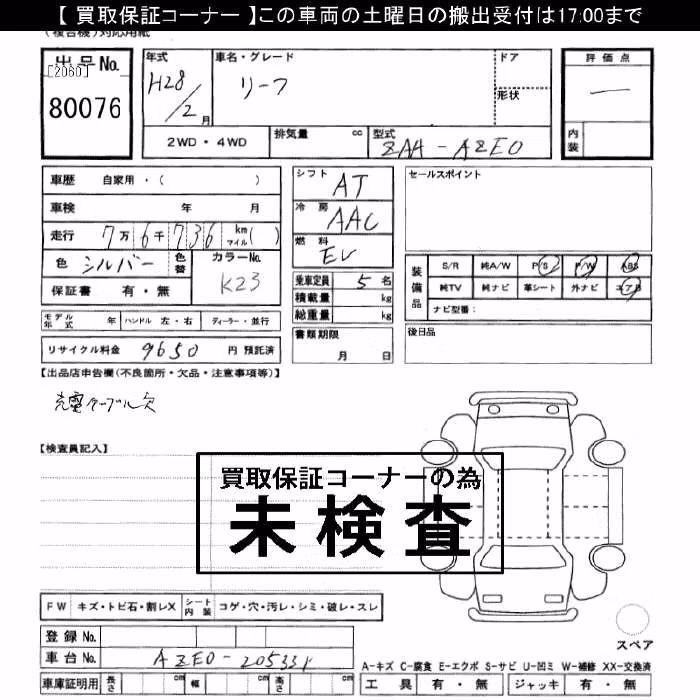 【 買取保証コーナー 】この車両の土曜日の搬出受付は17:00まで
(複合機)対応用紙
出品No.
[2060]
80076
年式
H28/2月
車名・グレード
リーフ
ドア
形状
2WD・4WD
排気量 cc
型式
ZAA-AZE0
評価点
内装
車歴 自家用・( )
車検 年 月
走行 7万6千736 km マイル( )
色 シルバー 色替 カラーNo. K23
保証書 有・無
シフト AT
冷房 AAC
燃料 EV
乗車定員 5 名
積載量 kg
総重量 kg
書類期限
月 日
セールスポイント
装備品
S/R 純A/W P/S P/W ABS
純TV 純ナビ 革シート 外ナビ エアB
ナビ型番:
後日品
モデル年式 年 ハンドル 左・右 ディーラー・並行
リサイクル料金 9650 円 預託済
【出品店申告欄(不良箇所・欠品・注意事項等)】
充電ケーブル欠
【検査員記入】
買取保証コーナーの為
未検査
FW キズ・トビ石・割レX シート内装 コゲ・穴・汚レ・シミ・破レ・スレ
登録No.
車台No. AZE0-205331
車庫証明用 長さ cm 幅 cm 高さ cm
スペア
A-キズ C-腐食 E-エクボ S-サビ U-凹ミ W-補修 XX-交換済
工具 有・無 ジャッキ 有・無